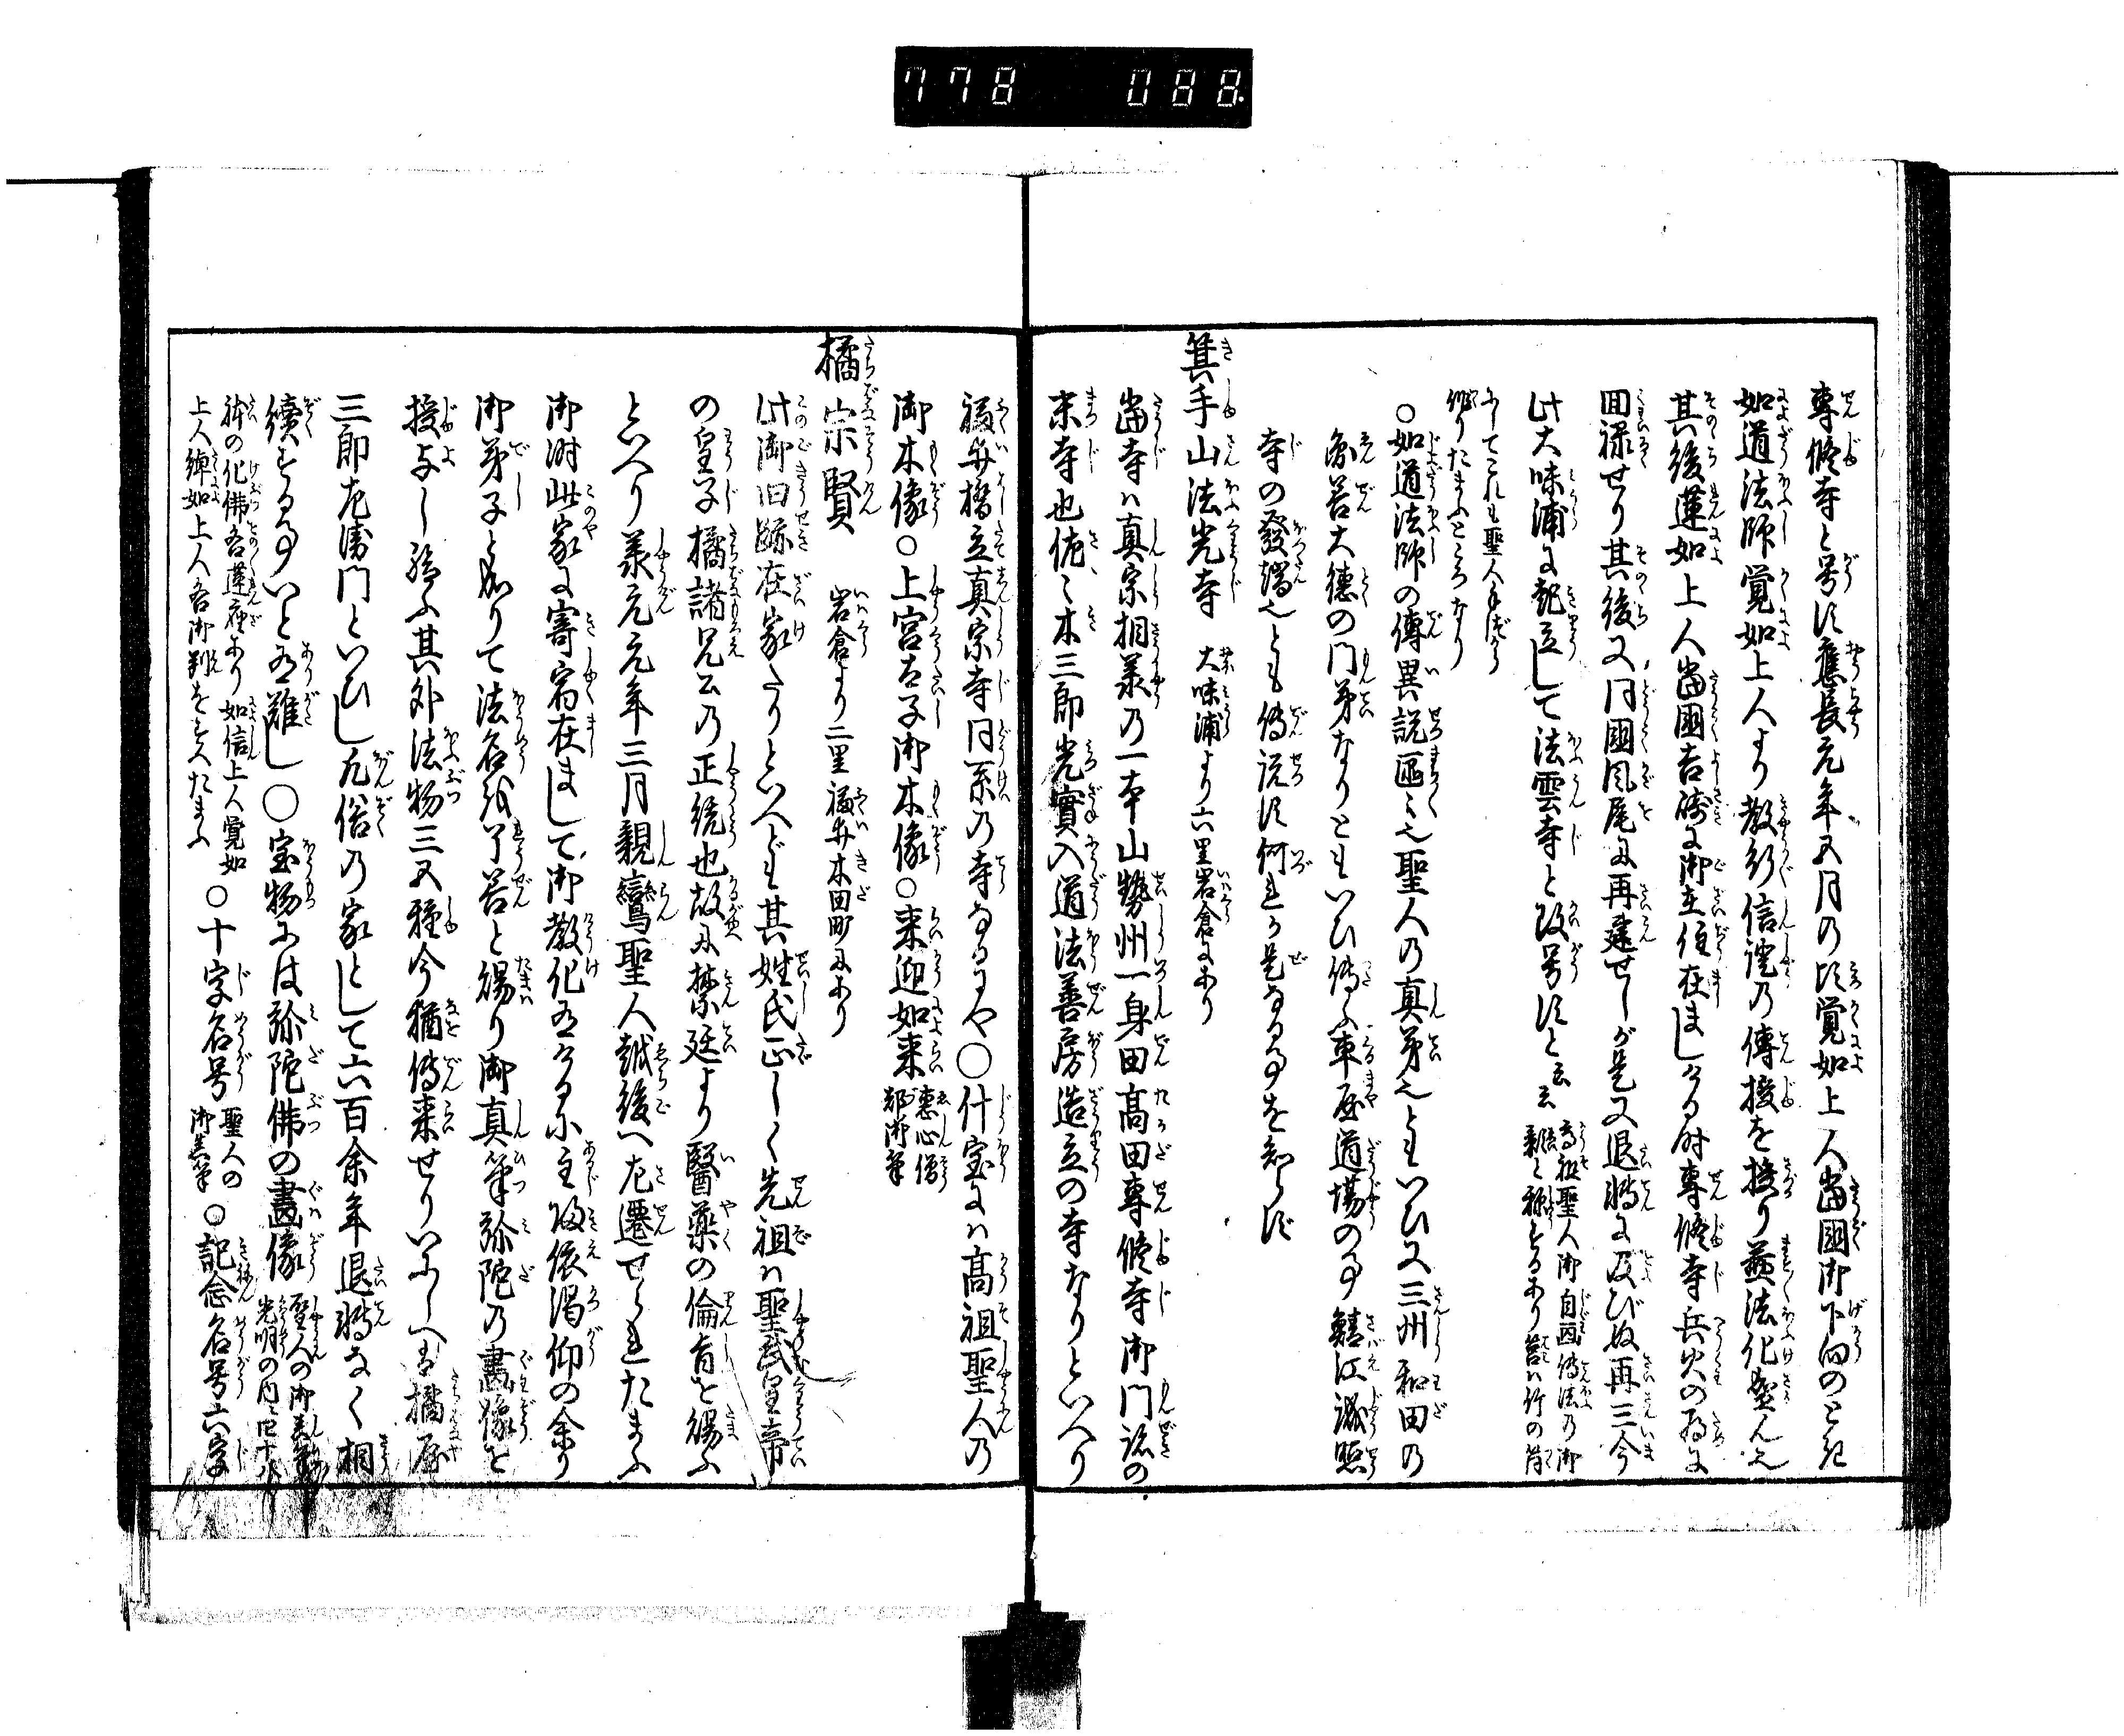 778 088
専修寺と号す應長元年五月の比覚如上人當國御下向のとき
如道法師覚如上人より教行信證の傳授を授り益法化盛ん也
其後蓮如上人當國吉崎に御在住在ましける時専修寺兵火の為に
回禄せり其後又同國風尾に再建せしが是又退轉に及びぬ再三今
此大味浦に起立して法雲寺と改号すと云云 高祖聖人御自画傳法の御影と称するあり 筥は竹の筒
にてこれも聖人手づから作りたまふところなり
○如道法師の傳異説區々也聖人の真弟也ともいひ又三州和田の
圓善大徳の門弟なりともいひ傳ふ車屋道場の事鯖江誠照
寺の發端也とも傳説す何れか是なる事を知らず
箕手山法光寺 大味浦より六里岩倉にあり
當寺は真宗相承の一本山勢州一身田高田専修寺御門跡の
末寺也佐々木三郎光實入道法善房造立の寺なりといへり
福井橋立真宗寺同系の寺なるにや○什宝には高祖聖人の
御木像○上宮太子御木像○来迎如来 惠心僧都御筆
橘宗賢 岩倉より二里福井木田町にあり
此御旧跡在家たりといへども其姓氏正しく先祖は聖武皇帝
の皇子橘諸兄公の正統也故に禁廷より醫藥の倫旨を賜ふ
といへり承元元年三月親鸞聖人越後へ左遷せられたまふ
御時此家に寄宿在まして御教化有けるに主帰依渇仰の余り
御弟子と成りて法名を了善と賜り御真筆弥陀の畫像を
授与し給ふ其外法物三五種今猶傳来せりいにしへは橘屋
三郎左衛門といひし凡俗の家として六百余年退轉なく相
續する事いと有難し○宝物には弥陀佛の畫像 聖人の御真筆光明の内に四十八
体の化佛各蓮座あり 如信上人覚如上人綽如上人各御判をすへたまふ ○十字名号 聖人の御真筆 ○記念名号六字